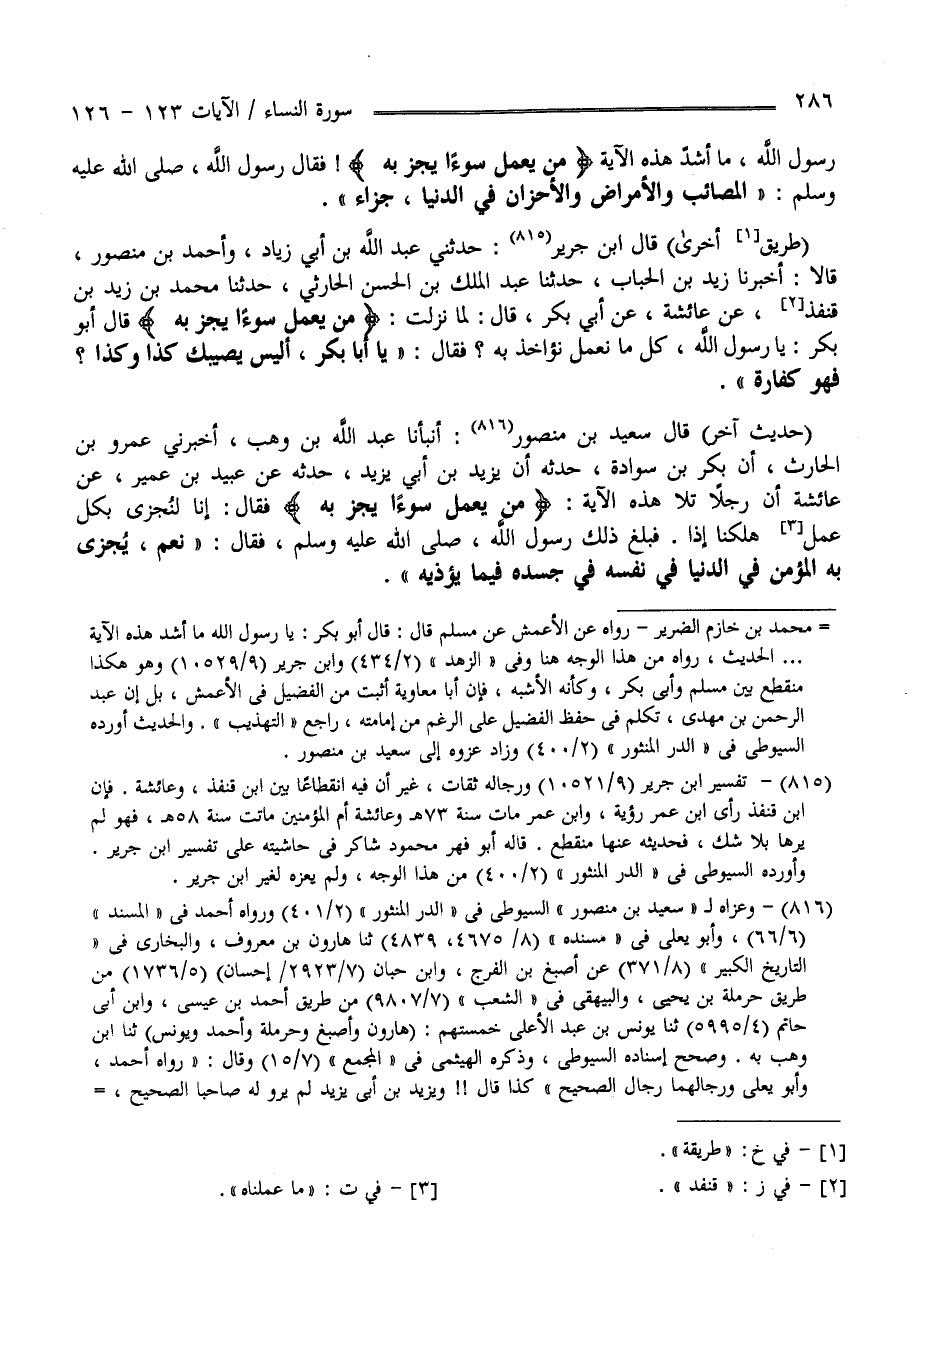 ٢٨٦ سورة النساء / الآيات ١٢٣ - ١٢٦
رسول اللَّه ، ما أشدّ هذه الآية ﴿ من يعمل سوءًا يجز به ﴾ ! فقال رسول اللَّه ، صلى الله عليه
وسلم : « المصائب والأمراض والأحزان في الدنيا ، جزاء » .
(طريق[١] أخرىٰ) قال ابن جرير(٨١٥) : حدثني عبد اللَّه بن أبي زياد ، وأحمد بن منصور ،
قالا : أخبرنا زيد بن الحباب ، حدثنا عبد الملك بن الحسن الحارثي ، حدثنا محمد بن زيد بن
قنفذ[٢] ، عن عائشة ، عن أبي بكر ، قال : لما نزلت : ﴿ من يعمل سوءًا يجز به ﴾ قال أبو
بكر : يا رسول اللَّه ، كل ما نعمل نؤاخذ به ؟ فقال : « يا أبا بكر ، أليس يصيبك كذا وكذا ؟
فهو كفارة » .
(حديث آخر) قال سعيد بن منصور(٨١٦) : أنبأنا عبد اللَّه بن وهب ، أخبرني عمرو بن
الحارث ، أن بكر بن سوادة ، حدثه أن يزيد بن أبي يزيد ، حدثه عن عبيد بن عمير ، عن
عائشة أن رجلًا تلا هذه الآية : ﴿ من يعمل سوءًا يجز به ﴾ فقال : إنا لنُجزى بكل
عمل[٣] هلكنا إذا . فبلغ ذلك رسول اللَّه ، صلى الله عليه وسلم ، فقال : « نعم ، يُجزى
به المؤمن في الدنيا في نفسه في جسده فيما يؤذيه » .
= محمد بن خازم الضرير - رواه عن الأعمش عن مسلم قال : قال أبو بكر : يا رسول الله ما أشد هذه الآية
... الحديث ، رواه من هذا الوجه هنا وفى « الزهد » (٤٣٤/٢) وابن جرير (١٠٥٢٩/٩) وهو هكذا
منقطع بين مسلم وأبى بكر ، وكأنه الأشبه ، فإن أبا معاوية أثبت من الفضيل فى الأعمش ، بل إن عبد
الرحمن بن مهدى ، تكلم فى حفظ الفضيل على الرغم من إمامته ، راجع « التهذيب » . والحديث أورده
السيوطى فى « الدر المنثور » (٤٠٠/٢) وزاد عزوه إلى سعيد بن منصور .
(٨١٥) - تفسير ابن جرير (١٠٥٢١/٩) ورجاله ثقات ، غير أن فيه انقطاعًا بين ابن قنفذ ، وعائشة . فإن
ابن قنفذ رأى ابن عمر رؤية ، وابن عمر مات سنة ٧٣هـ وعائشة أم المؤمنين ماتت سنة ٥٨هـ ، فهو لم
يرها بلا شك ، فحديثه عنها منقطع . قاله أبو فهر محمود شاكر فى حاشيته على تفسير ابن جرير .
وأورده السيوطى فى « الدر المنثور » (٤٠٠/٢) من هذا الوجه ، ولم يعزه لغير ابن جرير .
(٨١٦) - وعزاه لـ « سعيد بن منصور » السيوطى فى « الدر المنثور » (٤٠١/٢) ورواه أحمد فى « المسند »
(٦٦/٦) ، وأبو يعلى فى « مسنده » (٨/ ٤٦٧٥، ٤٨٣٩) ثنا هارون بن معروف ، والبخارى فى «
التاريخ الكبير » (٣٧١/٨) عن أصبغ بن الفرج ، وابن حبان (٢٩٢٣/٧/ إحسان) (١٧٣٦/٥) من
طريق حرملة بن يحيى ، والبيهقى فى « الشعب » (٩٨٠٧/٧) من طريق أحمد بن عيسى ، وابن أبى
حاتم (٥٩٩٥/٤) ثنا يونس بن عبد الأعلى خمستهم : (هارون وأصبغ وحرملة وأحمد ويونس) ثنا ابن
وهب به . وصحح إسناده السيوطى ، وذكره الهيثمى فى « المجمع » (١٥/٧) وقال : « رواه أحمد ،
وأبو يعلى ورجالهما رجال الصحيح » كذا قال !! ويزيد بن أبى يزيد لم يرو له صاحبا الصحيح ، =
[١] - في خ : «طريقة» .
[٢] - في ز : « قنفد » . [٣] - في ت : «ما عملناه» .